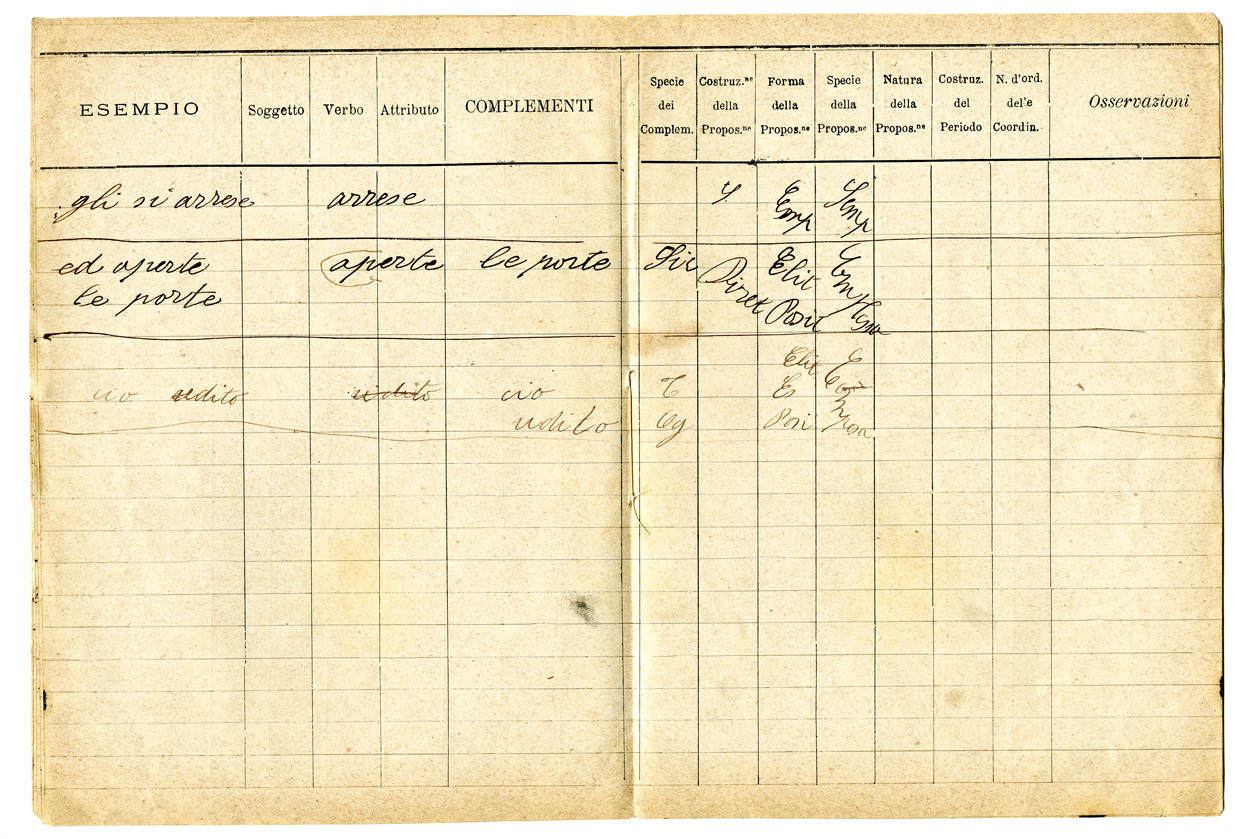 ESEMPIO Soggetto Verbo Attributo COMPLEMENTI
Specie dei Complem.
Costruz.ne della Propos.ne
Forma della Propos.ne
Specie della Propos.ne
Natura della Propos.ne
Costruz. del Periodo
N. d'ord. del'e Coordin.
Osservazioni
gli si arrese arrese S. Emp Semp
ed aperte aperte le porte Dir Diret Elit
le porte Posit
cio udito udito cio Elit
udito Cg Posi